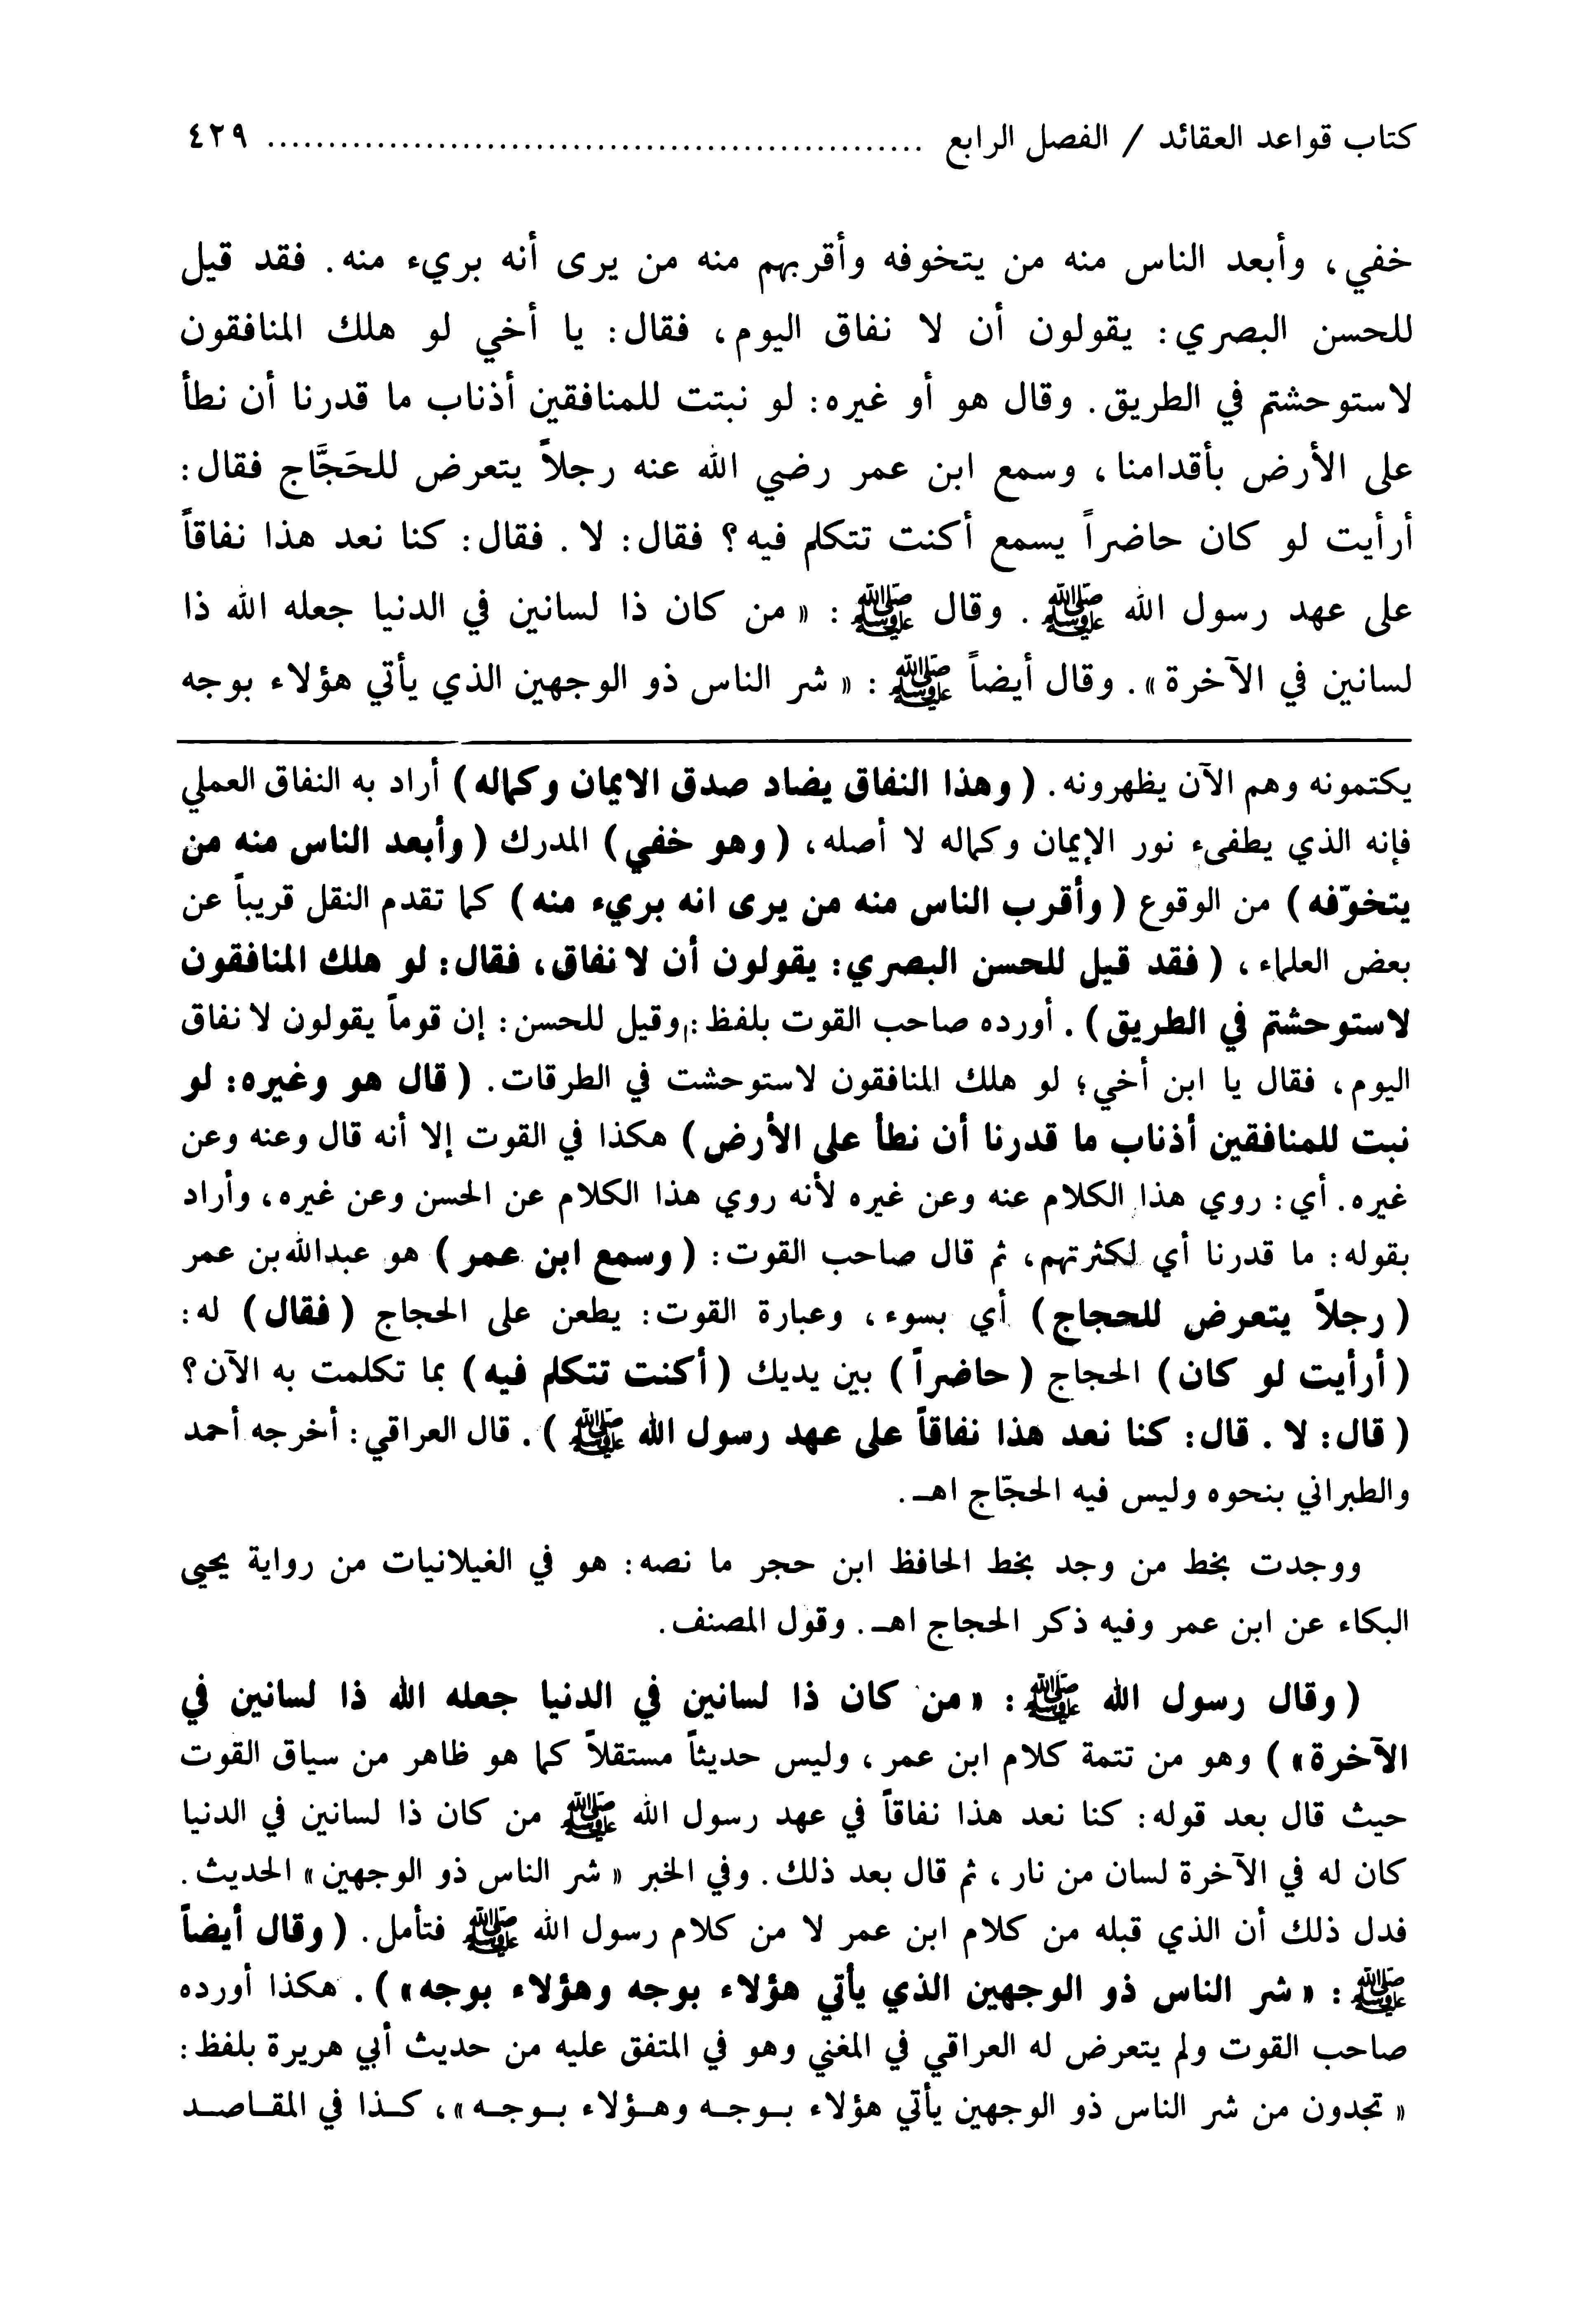 كتاب قواعد العقائد / الفصل الرابع ...................................................... ٤٢٩
خفي، وأبعد الناس منه من يتخوفه وأقربهم منه من يرى أنه بريء منه. فقد قيل
للحسن البصري: يقولون أن لا نفاق اليوم، فقال: يا أخي لو هلك المنافقون
لاستوحشتم في الطريق. وقال هو أو غيره: لو نبتت للمنافقين أذناب ما قدرنا أن نطأ
على الأرض بأقدامنا، وسمع ابن عمر رضي الله عنه رجلاً يتعرض للحَجَّاج فقال:
أرأيت لو كان حاضراً يسمع أكنت تتكلم فيه؟ فقال: لا. فقال: كنا نعد هذا نفاقاً
على عهد رسول الله ﷺ. وقال ﷺ: « من كان ذا لسانين في الدنيا جعله الله ذا
لسانين في الآخرة». وقال أيضاً ﷺ: « شر الناس ذو الوجهين الذي يأتي هؤلاء بوجه
يكتمونه وهم الآن يظهرونه. (وهذا النفاق يضاد صدق الايمان وكماله) أراد به النفاق العملي
فإنه الذي يطفىء نور الإيمان وكماله لا أصله، (وهو خفي) المدرك (وأبعد الناس منه من
يتخوّفه) من الوقوع (وأقرب الناس منه من يرى انه بريء منه) كما تقدم النقل قريباً عن
بعض العلماء، (فقد قيل للحسن البصري: يقولون أن لا نفاق، فقال: لو هلك المنافقون
لاستوحشتم في الطريق). أورده صاحب القوت بلفظ: وقيل للحسن: إن قوماً يقولون لا نفاق
اليوم، فقال يا ابن أخي؛ لو هلك المنافقون لاستوحشت في الطرقات. (قال هو وغيره: لو
نبت للمنافقين أذناب ما قدرنا أن نطأ على الأرض) هكذا في القوت إلا أنه قال وعنه وعن
غيره. أي: روي هذا الكلام عنه وعن غيره لأنه روي هذا الكلام عن الحسن وعن غيره، وأراد
بقوله: ما قدرنا أي لكثرتهم، ثم قال صاحب القوت: (وسمع ابن عمر) هو عبدالله بن عمر
(رجلاً يتعرض للحجاج) أي بسوء، وعبارة القوت: يطعن على الحجاج (فقال) له:
(أرأيت لو كان) الحجاج (حاضراً) بين يديك (أكنت تتكلم فيه) بما تكلمت به الآن؟
(قال: لا. قال: كنا نعد هذا نفاقاً على عهد رسول الله ﷺ). قال العراقي: أخرجه أحمد
والطبراني بنحوه وليس فيه الحجّاج اهـ.
ووجدت بخط من وجد بخط الحافظ ابن حجر ما نصه: هو في الغيلانيات من رواية يحيى
البكاء عن ابن عمر وفيه ذكر الحجاج اهـ. وقول المصنف.
(وقال رسول الله ﷺ: «من كان ذا لسانين في الدنيا جعله الله ذا لسانين في
الآخرة») وهو من تتمة كلام ابن عمر، وليس حديثاً مستقلاً كما هو ظاهر من سياق القوت
حيث قال بعد قوله: كنا نعد هذا نفاقاً في عهد رسول الله ﷺ من كان ذا لسانين في الدنيا
كان له في الآخرة لسان من نار، ثم قال بعد ذلك. وفي الخبر « شر الناس ذو الوجهين» الحديث.
فدل ذلك أن الذي قبله من كلام ابن عمر لا من كلام رسول الله ﷺ فتأمل. (وقال أيضاً
ﷺ: « شر الناس ذو الوجهين الذي يأتي هؤلاء بوجه وهؤلاء بوجه»). هكذا أورده
صاحب القوت ولم يتعرض له العراقي في المغني وهو في المتفق عليه من حديث أبي هريرة بلفظ:
« تجدون من شر الناس ذو الوجهين يأتي هؤلاء بـوجـه وهـؤلاء بـوجـه»، كـذا في المقـاصـد